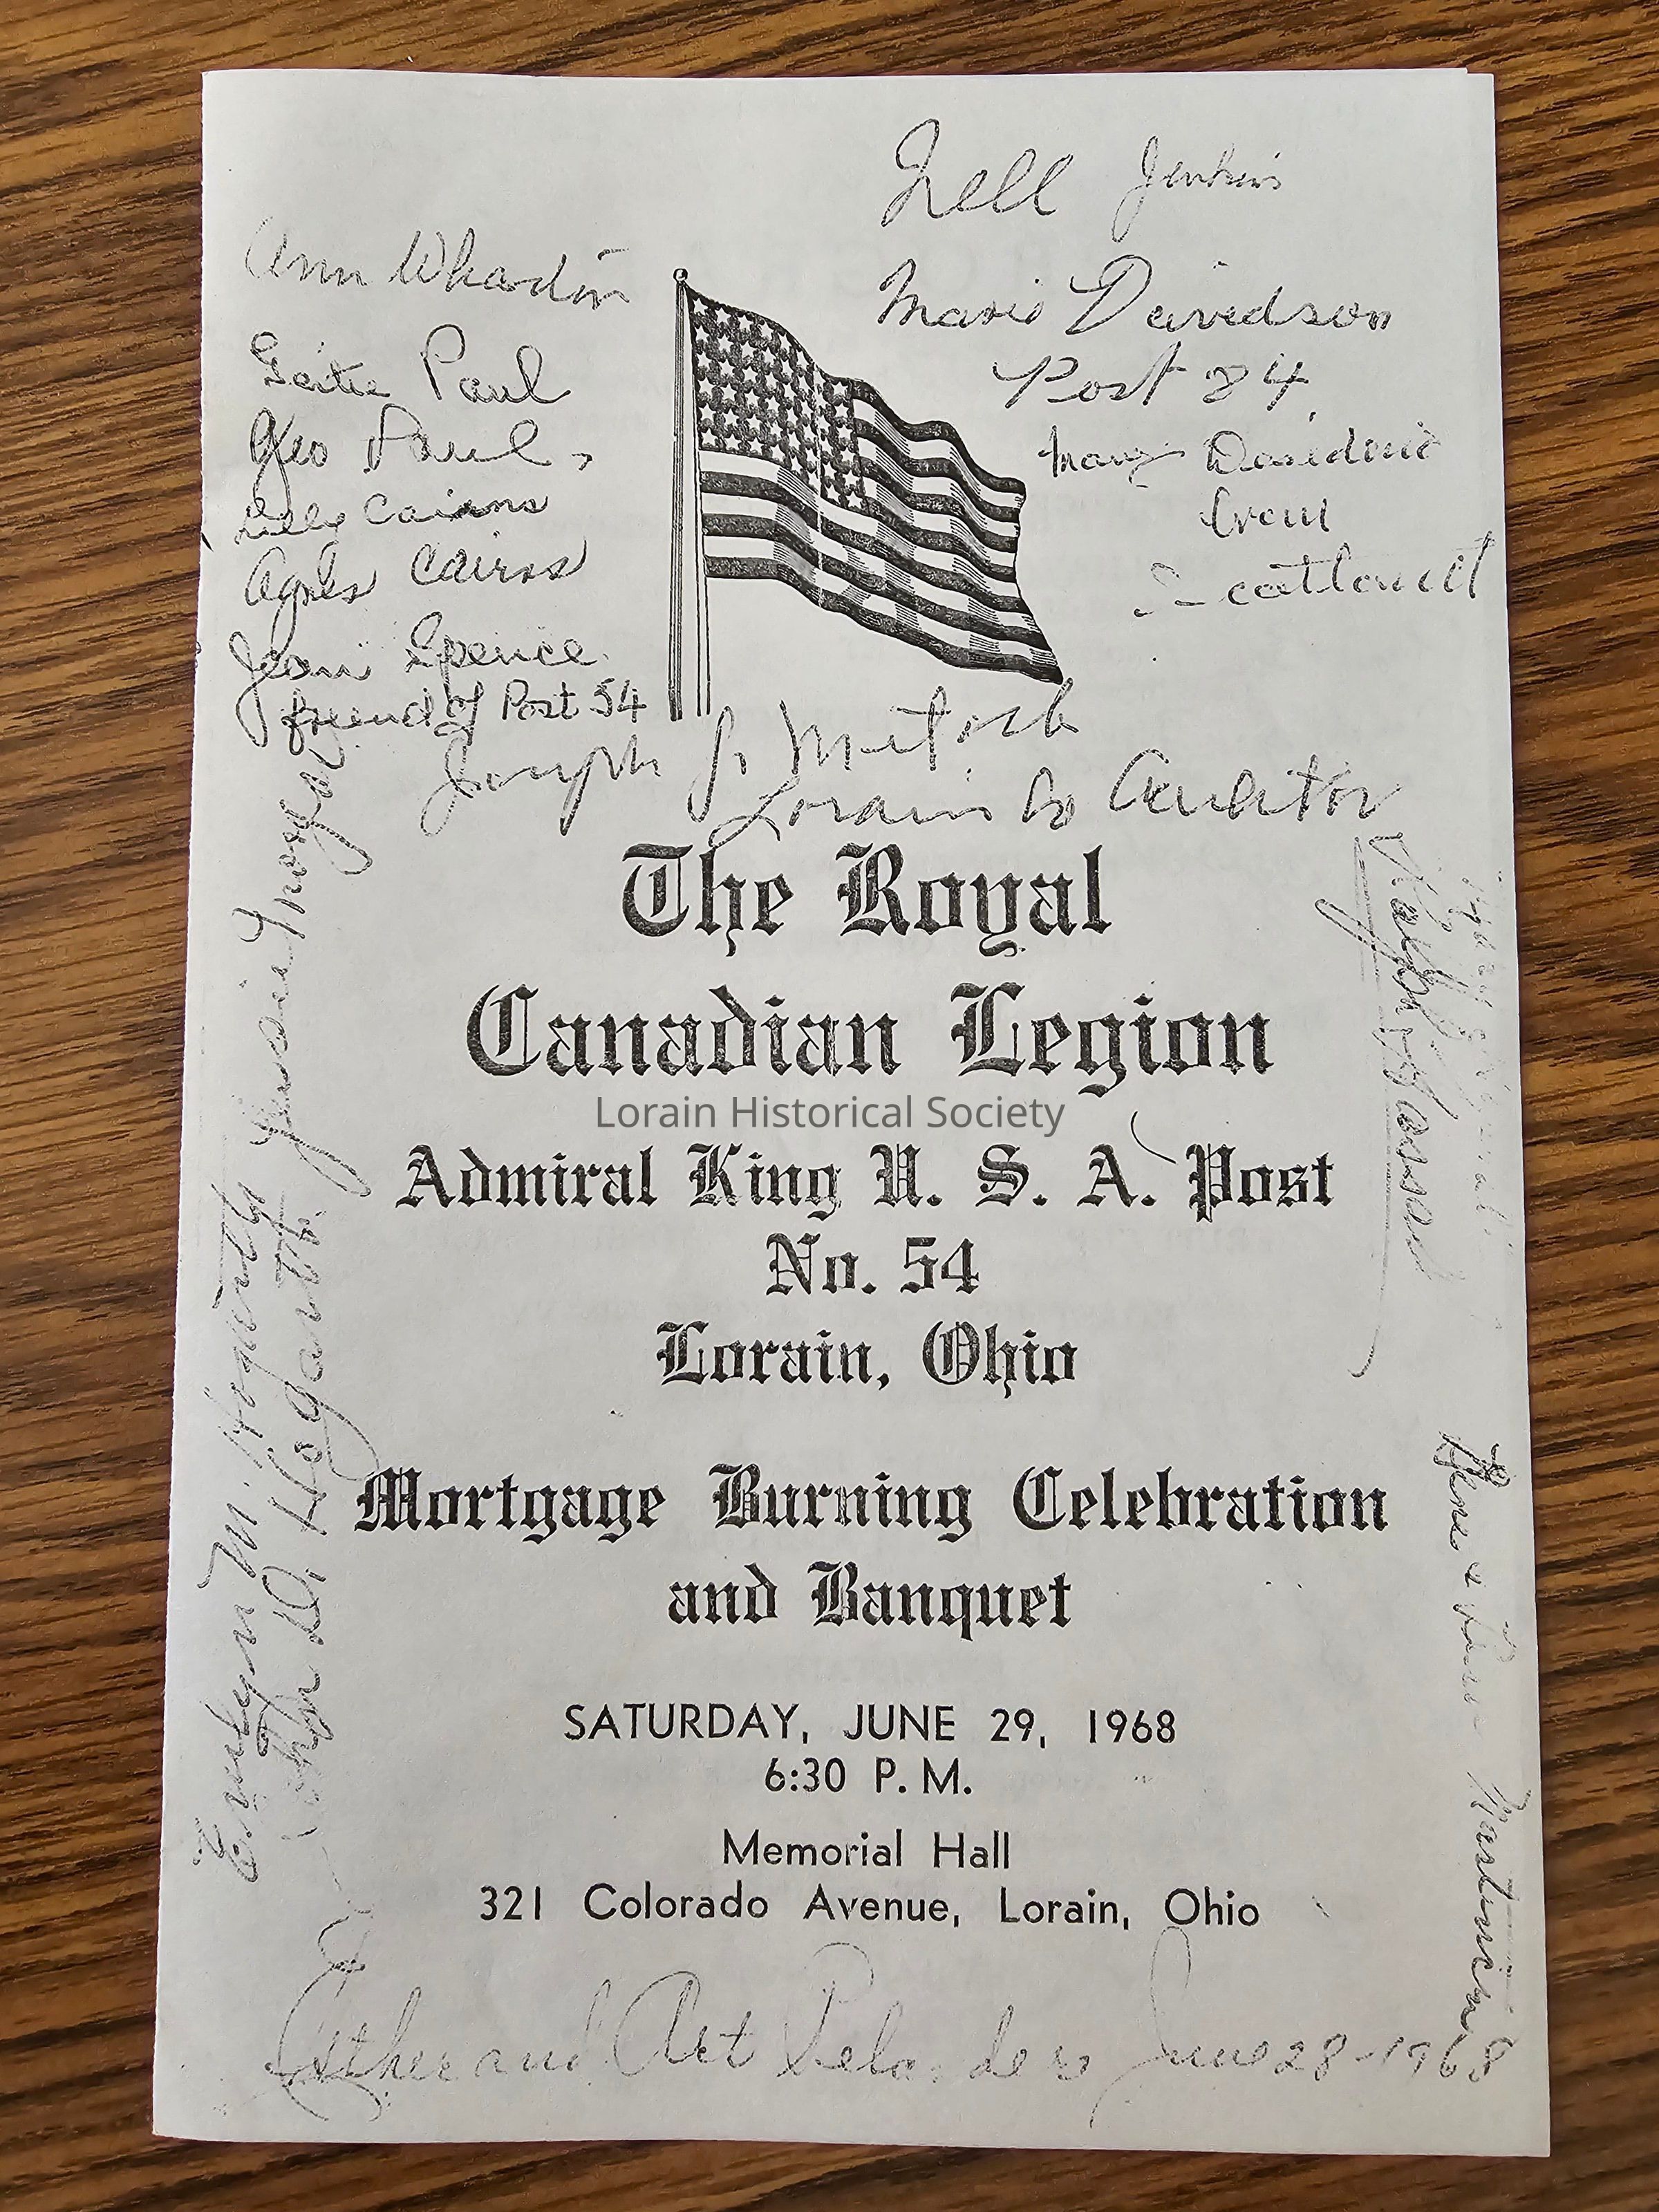 Nell Jenkins
Ann Wharton
Marie Davidson
Post 84
Paul
Geo Paul
Lilly Cairns
Agnes Cairns
Jean Spence
friend of Post 54
Mary
from
Joseph J. Mitock
Lorain Co Auditor
The Royal
Canadian Legion
Lorain Historical Society
Admiral King U. S. A. Post
No. 54
Lorain, Ohio
Mortgage Burning Celebration
and Banquet
SATURDAY, JUNE 29, 1968
6:30 P. M.
Memorial Hall
321 Colorado Avenue, Lorain, Ohio
Esther and Art June 28-1968
Jessie
Evelyn M. Hogarth
John D. Hogarth
Ralph
Martincin